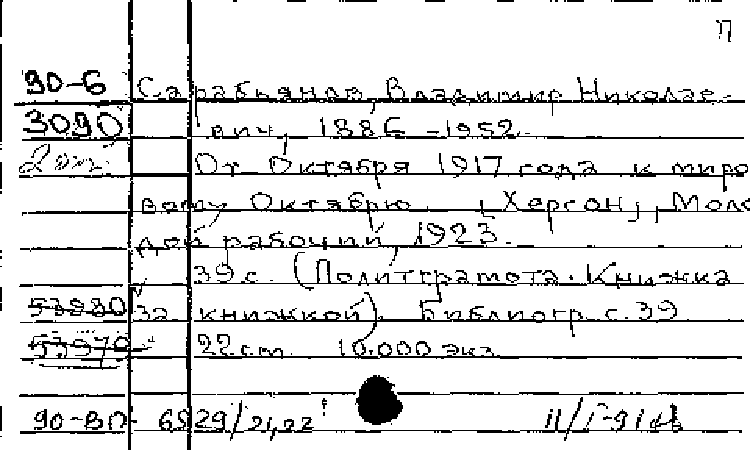 П
90-6 Сарабьянов, Владимир Николае-
3090 вич, 1886-1952.
2 экз. От Октября 1917 года к миро
вому Октябрю. [Херсон], Моло
дой рабочий, 1923.
39 с. (Политграмота. Книжка
53830 за книжкой). Библиогр. с. 39
53970 22 cm 10.000 экз.
90-ВП 6929/21,22 11/I-91